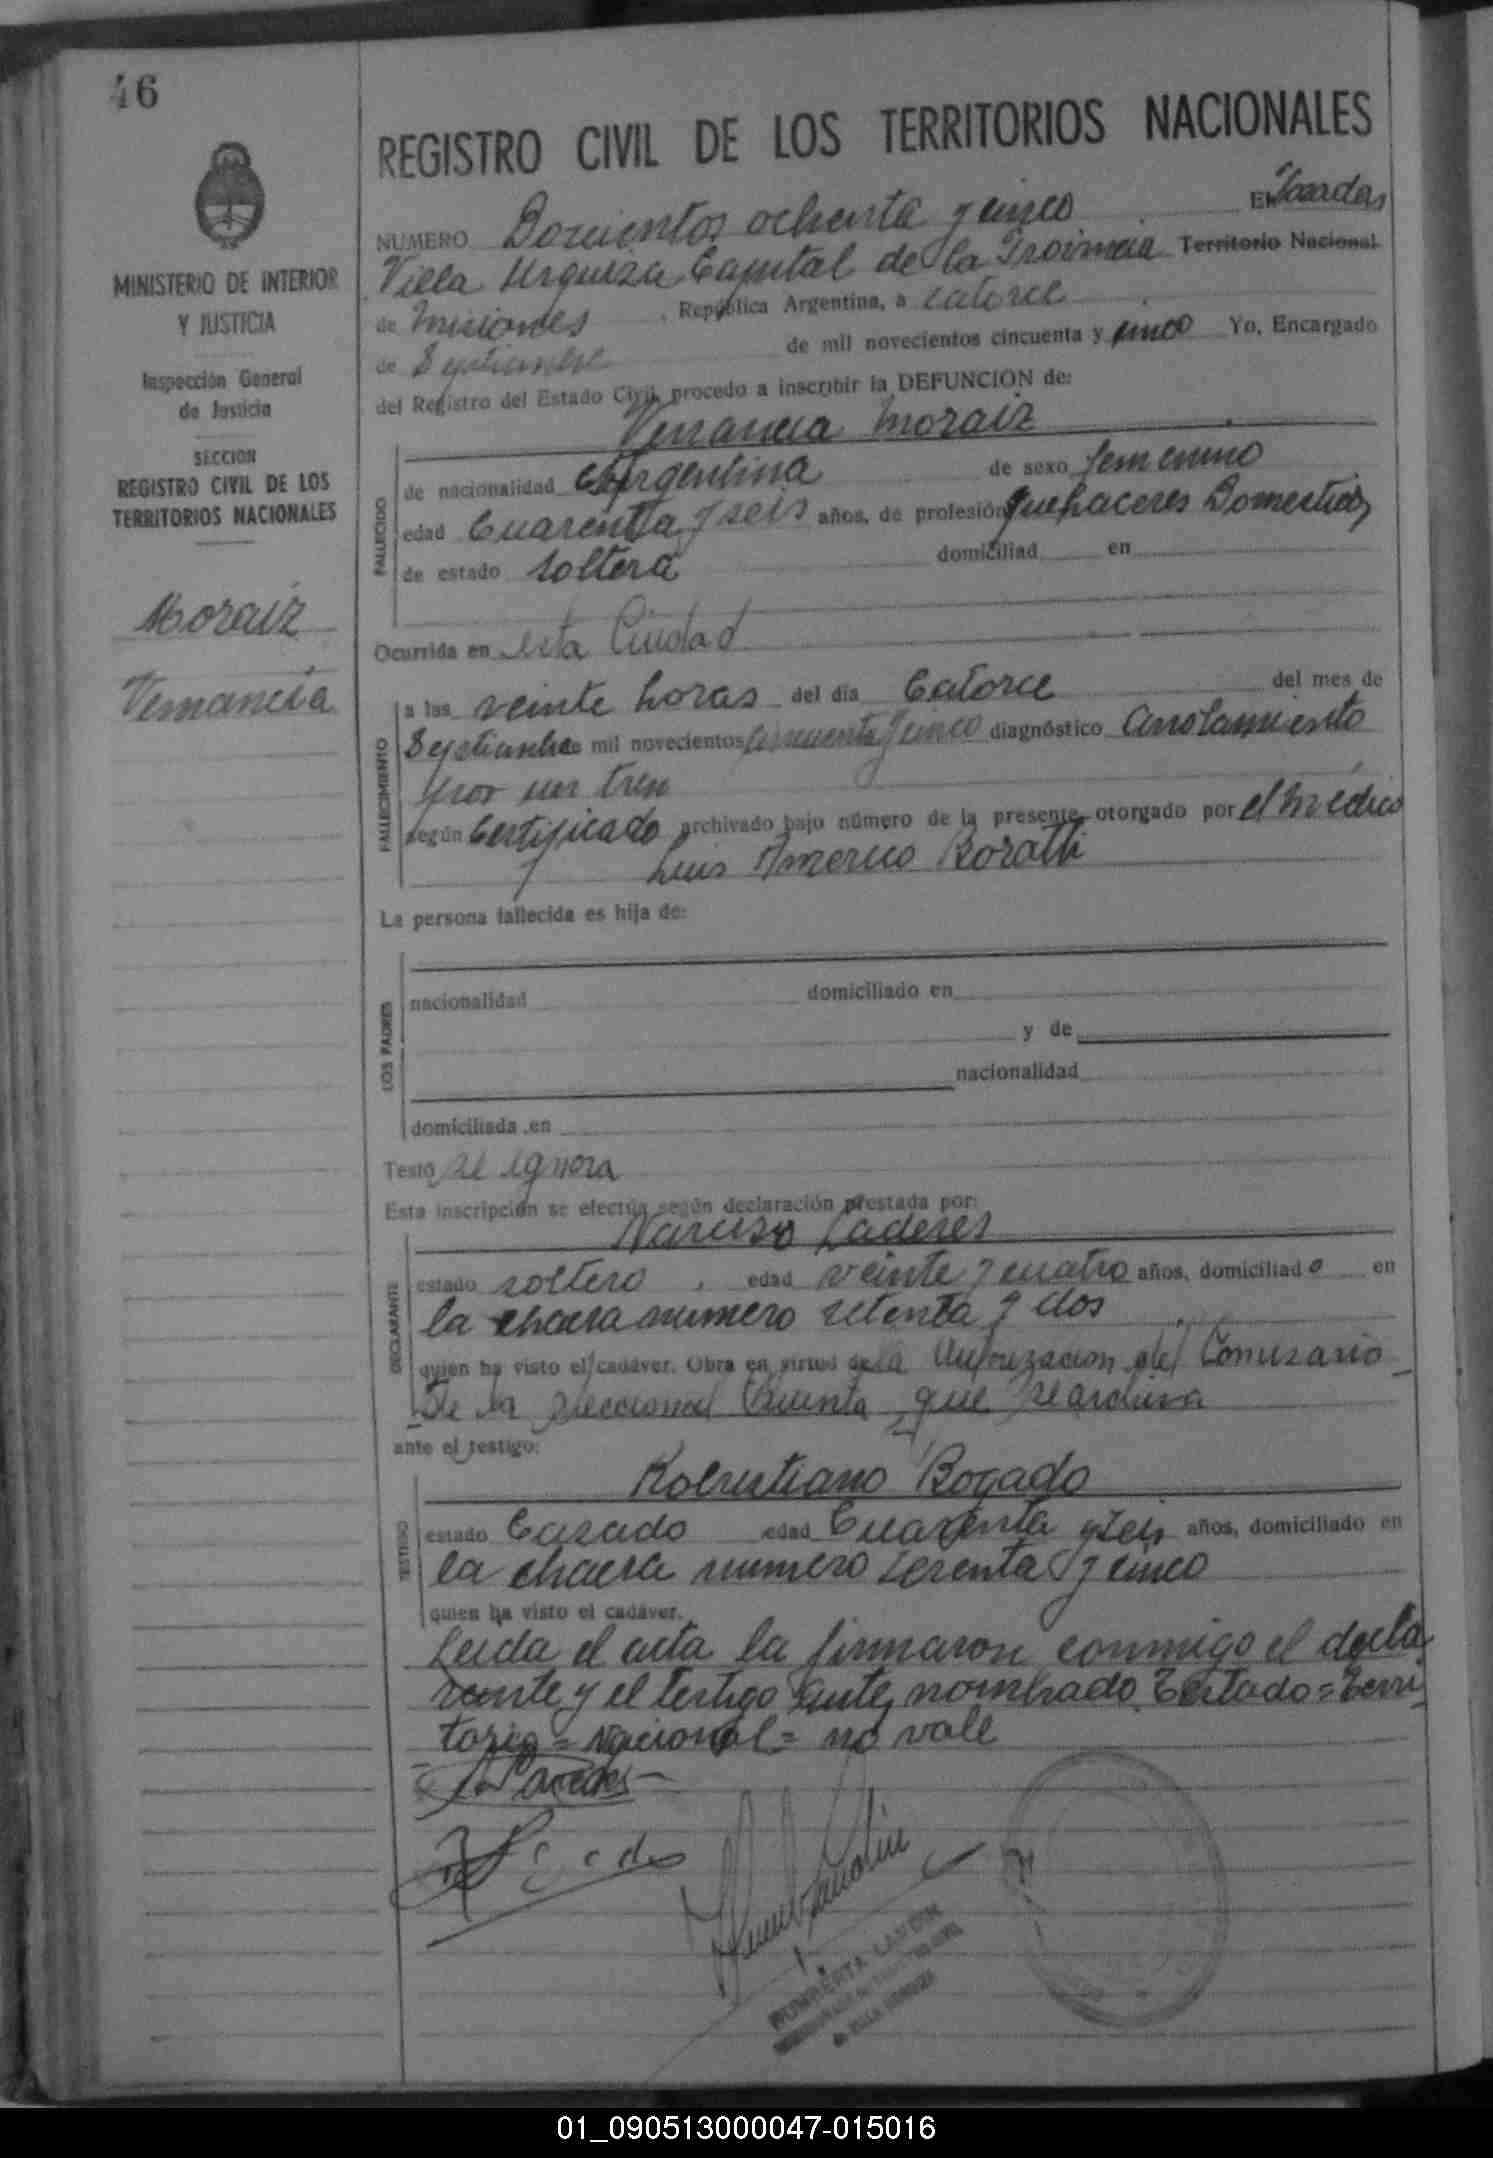 46
REGISTRO CIVIL DE LOS TERRITORIOS NACIONALES
MINISTERIO DE INTERIOR
Y JUSTICIA
Inspección General
de Justicia
SECCION
REGISTRO CIVIL DE LOS
TERRITORIOS NACIONALES
Moraiz
Venancia
NUMERO Dorcientos ochenta y cinco EN Posadas
Villa Urquiza Capital de la Provincia Territorio Nacional
de Misiones, República Argentina, a catorce
de Septiembre de mil novecientos cincuenta y cinco Yo, Encargado
del Registro del Estado Civil, procedo a inscribir la DEFUNCION de:
Venancia Moraiz
FALLECIDO
de nacionalidad Argentina de sexo femenino
edad Cuarenta y seis años, de profesión quehaceres Domesticos
de estado soltera domiciliad en
Ocurrida en esta Ciudad
FALLECIMIENTO
a las veinte horas del día Catorce del mes de
Septiembre de mil novecientos cincuenta y cinco diagnóstico Arrolamiento
por un tren
según Certificado archivado bajo número de la presente, otorgado por el médico
Luis Americo Boratti
La persona fallecida es hija de:
LOS PADRES
nacionalidad domiciliado en
y de
nacionalidad
domiciliada en
Testó se ignora
Esta inscripción se efectúa según declaración prestada por:
DECLARANTE
Narciso
estado soltero, edad veinte y cuatro años, domiciliado en
la chacra numero setenta y dos
quien ha visto el cadáver. Obra en virtud de la Autorizacion del Comisario
De la seccional Quinta, que se archiva
ante el testigo:
TESTIGO
Robustiano Bogado
estado Casado edad Cuarenta y seis años, domiciliado en
la chacra numero sesenta y cinco
quien ha visto el cadáver.
Leida el acta la firmaron conmigo el decla
rante y el testigo ante nombrado. Testado = Terri
torio = Nacional = no vale
HUMBERTA LANDIN
01_090513000047-015016